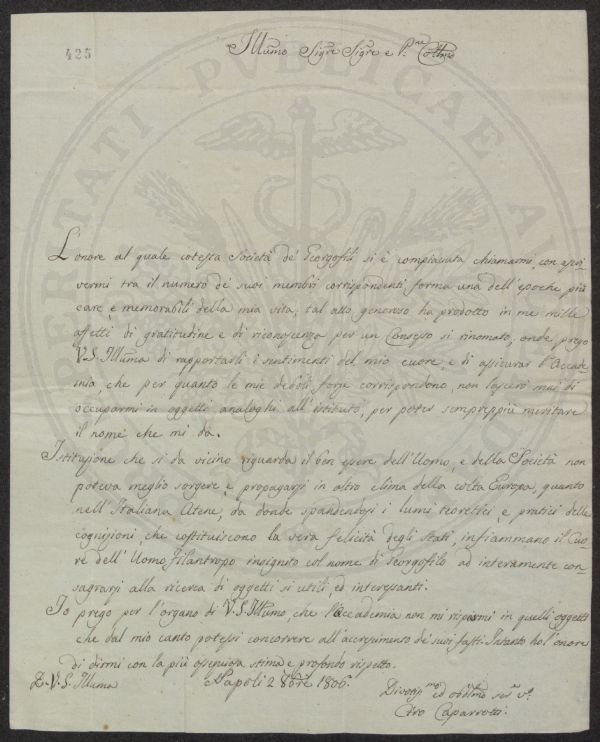 425
Illumo Sigre Sigre e P.ne Colmo
L'onore al quale cotesta Società de' Georgofili si è compiaciuta chiamarmi, con ascri-
vermi tra il numero de' suoi membri corrispondenti forma una dell'epoche più
care, e memorabili della mia vita; tal atto generoso ha prodotto in me mille
affetti di gratitudine e di riconoscenza per un Consesso sì rinomato, onde prego
V.S. Illuma di rapportarli i sentimenti del mio cuore, e di assicurar l'Accade-
mia, che per quanto le mie deboli forze corrispondono, non lascerò mai di
occuparmi in oggetti analoghi all'istituto, per poter sempreppiù meritare
il nome che mi da.
Istituzione che si da vicino riguarda il ben essere dell'Uomo, e della Società non
poteva meglio sorgere, e propagarsi in altro clima della colta Europa, quanto
nell'Italiana Atene, da donde spandendosi i lumi teoretici, e pratici delle
cognizioni, che costituiscono la vera felicità degli stati, infiammano il Cuo-
re dell'Uomo Filantropo insignito col nome di Georgofilo ad interamente con-
sagrarsi alla ricerca di oggetti sì utili, ed interessanti.
Io prego per l'organo di V.S. Illumo, che l'Accademia non mi risparmi in quelli oggetti
che dal mio canto potessi concorrere all'accrescimento de' suoi fasti. Intanto ho l'onore
di dirmi con la più ossequiosa stima e profondo rispetto.
D. V. S. Illuma Napoli 2 8bre 1806. Divotiss.mo ed obblmo ser.e v.o
Ciro Caparrotti.
PUBLICAE